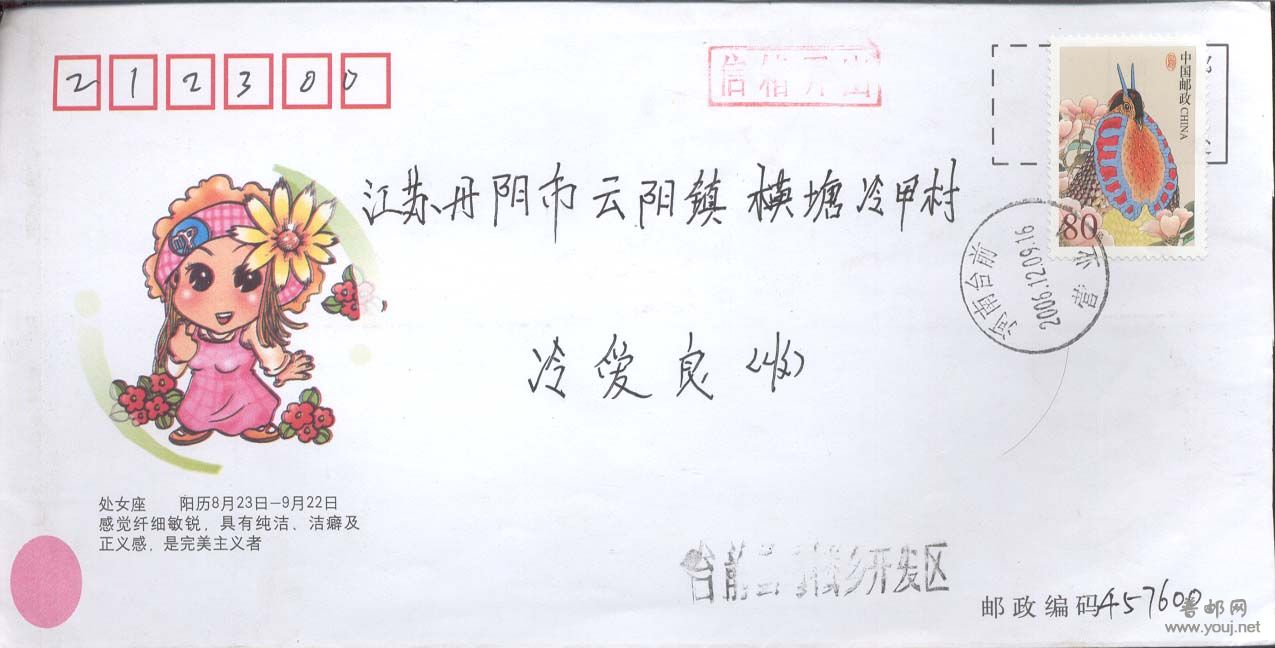 212300
信箱开出
中国邮政 CHINA
80
江苏丹阳市云阳镇横塘冷甲村
河南台前
2006.12.09.16
营业
冷爱良(收)
处女座 阳历8月23日-9月22日
感觉纤细敏锐,具有纯洁、洁癖及
正义感,是完美主义者
台前 乡开发区
邮政编码 457600
普邮网
www.youj.net